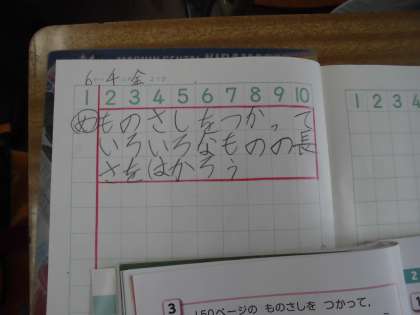 6 4 金
1 2 3 4 5 6 7 8 9 10
めものさしをつかって
いろいろなものの長
さをはかろう
1 2 3 4
3
150ページの ものさしを つかって,
2